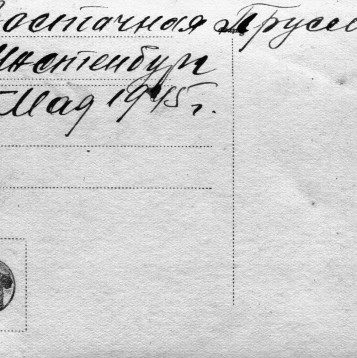 Восточная Прусси
Инстенбург
Мая 1945 г.